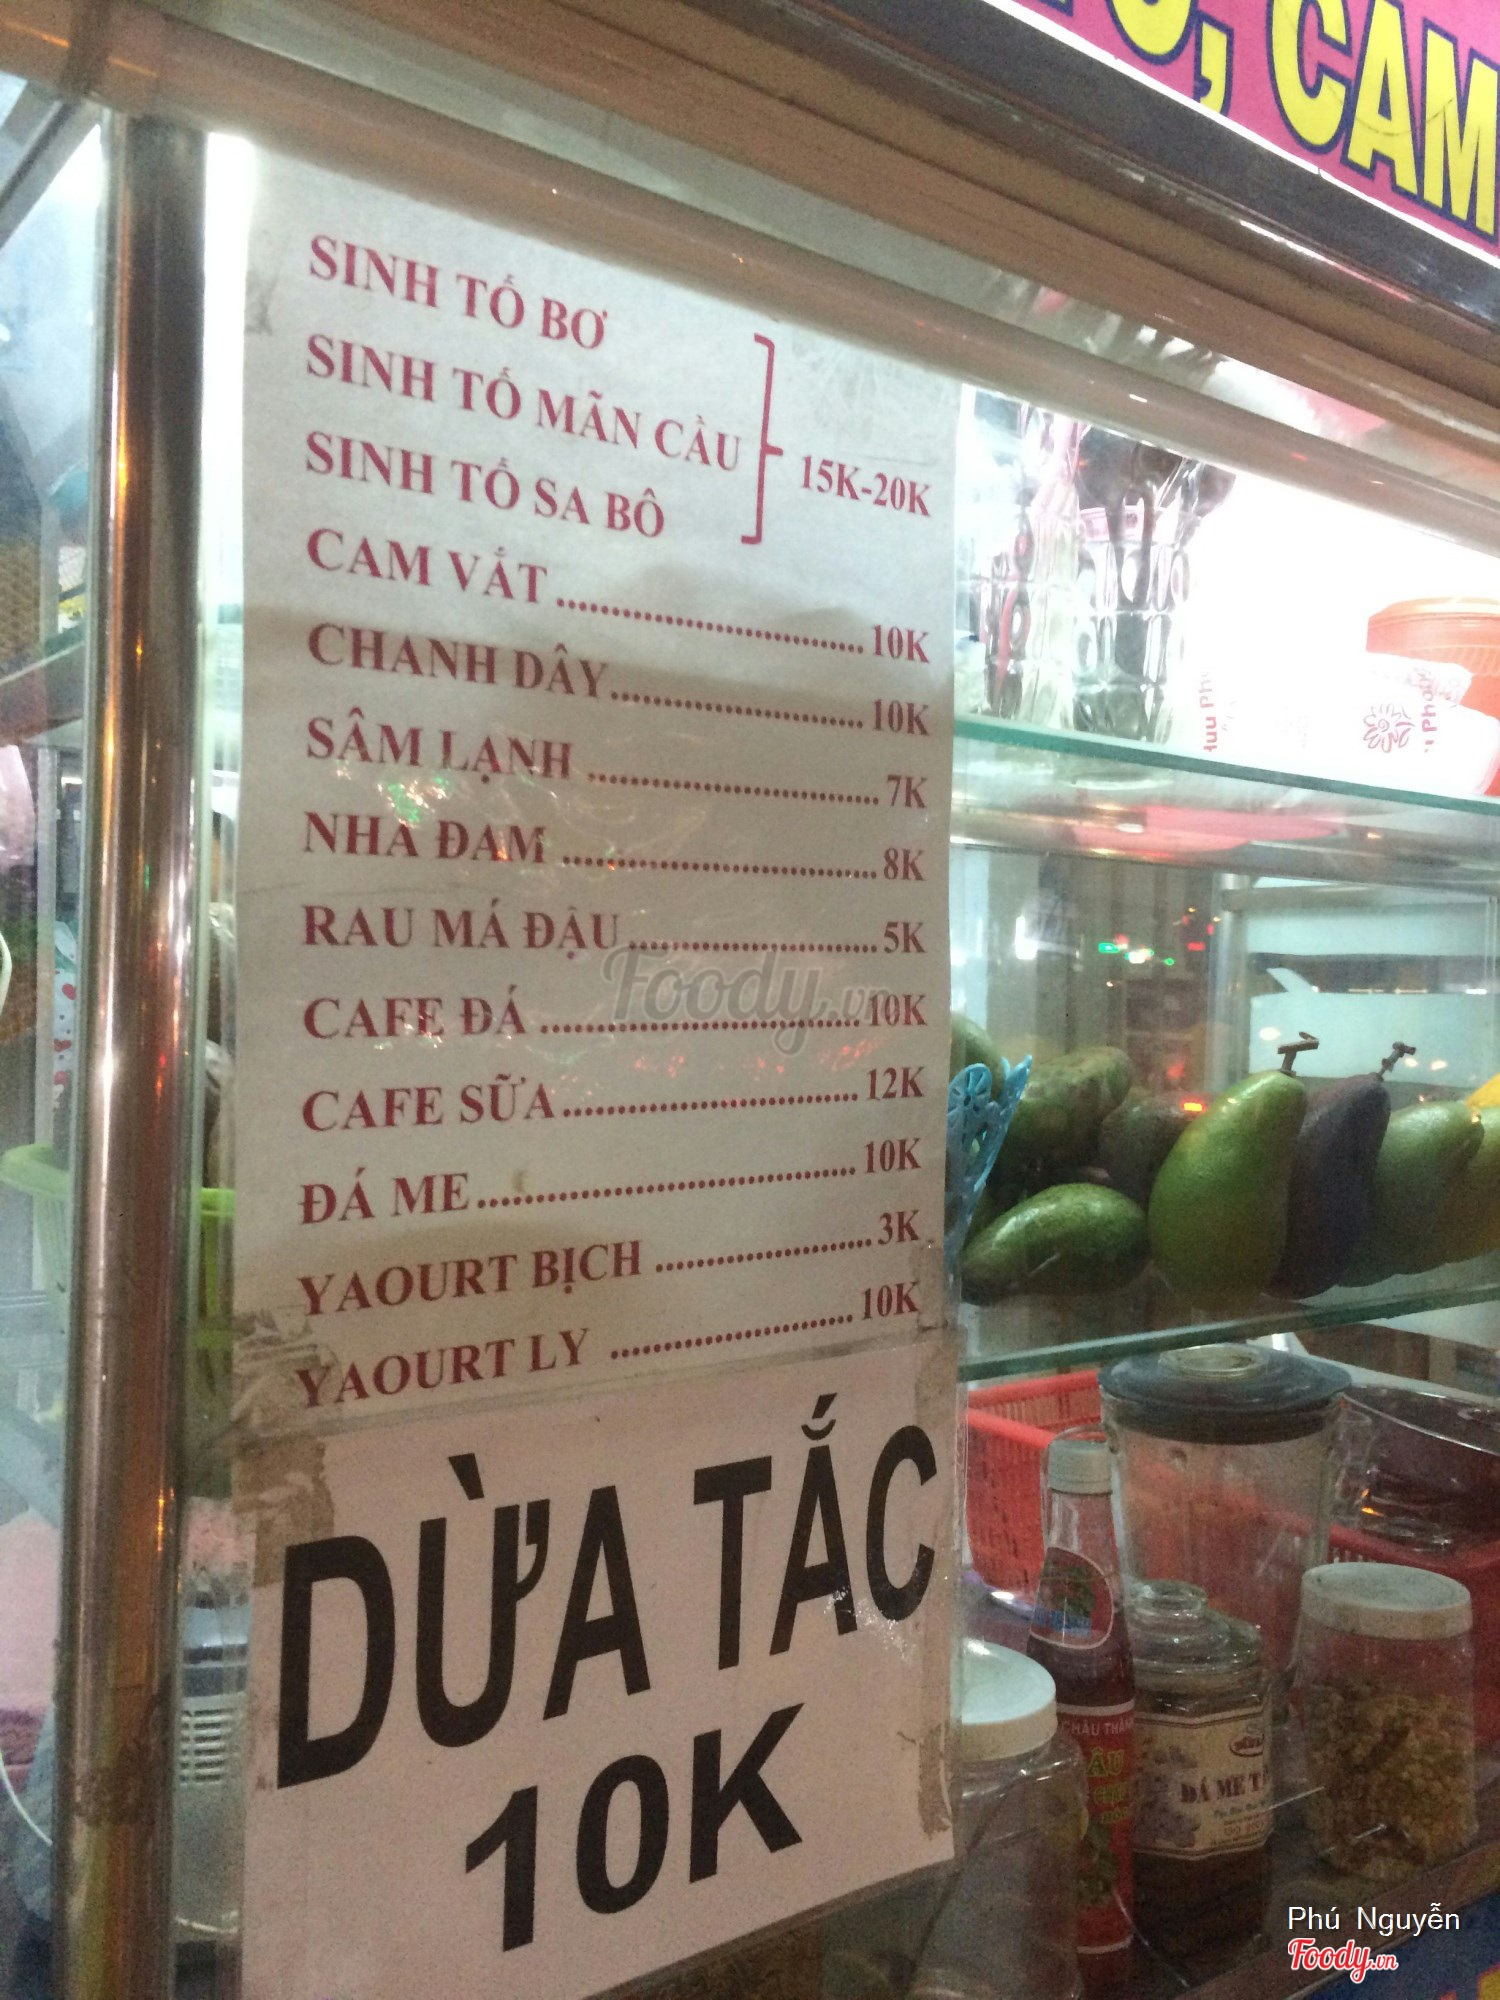 CAM
SINH TỐ BƠ
SINH TỐ MÃN CẦU
SINH TỐ SA BÔ
15K-20K
CAM VẮT 10K
CHANH DÂY 10K
SÂM LẠNH 7K
NHA ĐAM 8K
RAU MÁ ĐẬU 5K
CAFE ĐÁ 10K
CAFE SỮA 12K
ĐÁ ME 10K
YAOURT BỊCH 3K
YAOURT LY 10K
DỪA TẮC
10K
Foody.vn
ĐÁ ME
Phú Nguyễn
Foody.vn